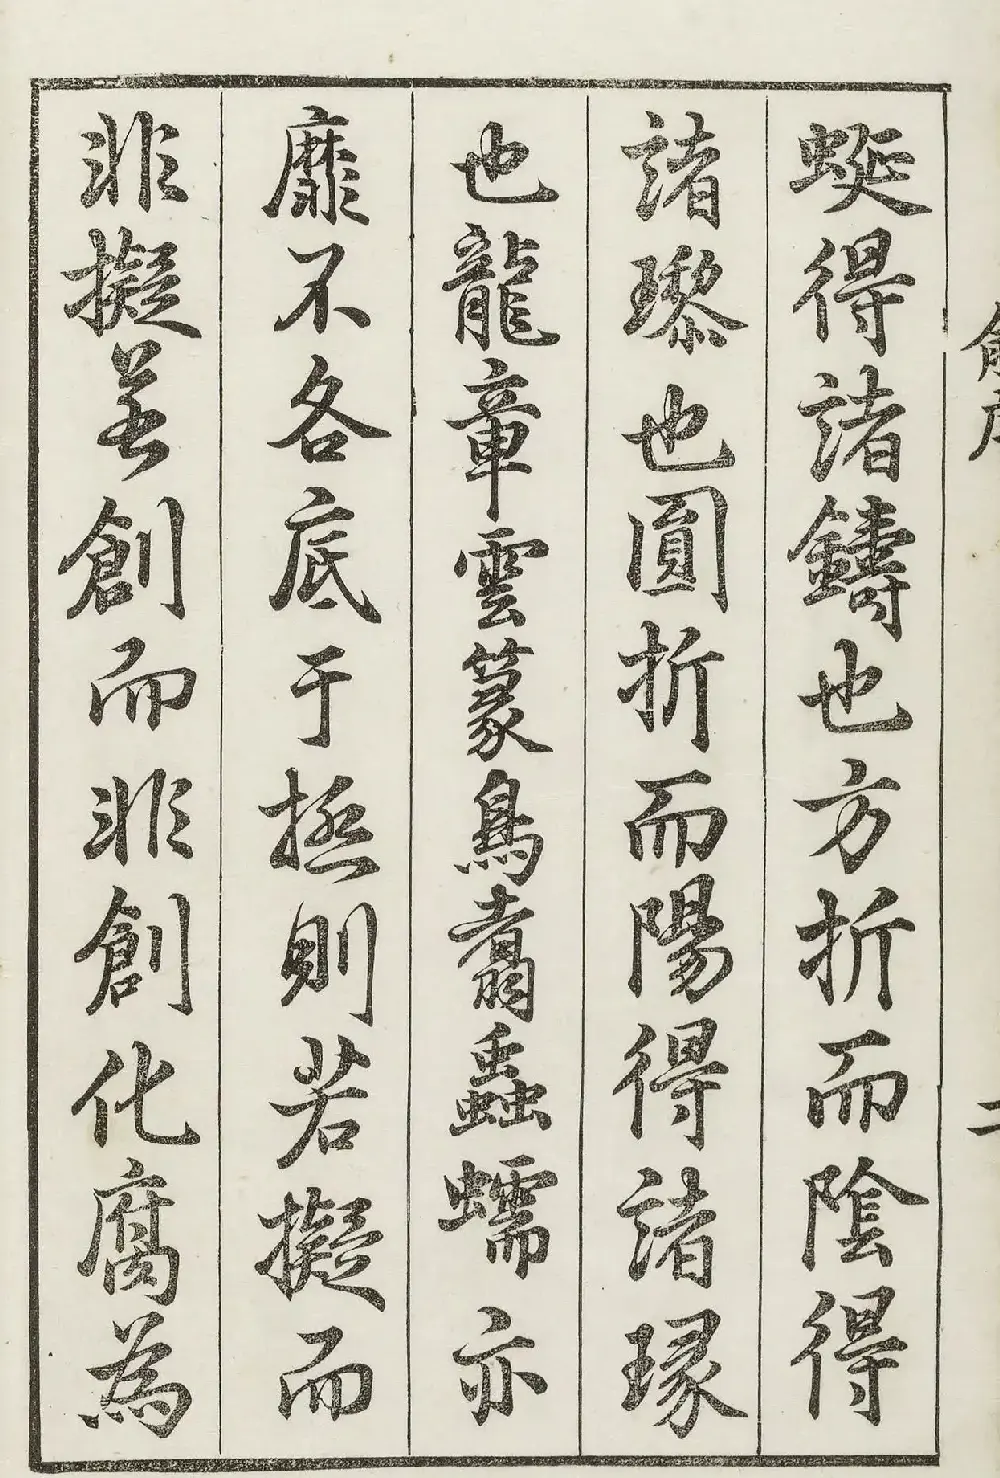 蜒得諸鑄也方折而陰得
諸瓈也圓折而陽得諸瑑
也龍章雲篆鳥翥蟲蠕亦
靡不各底于極則若擬而
非擬若創而非創化腐為